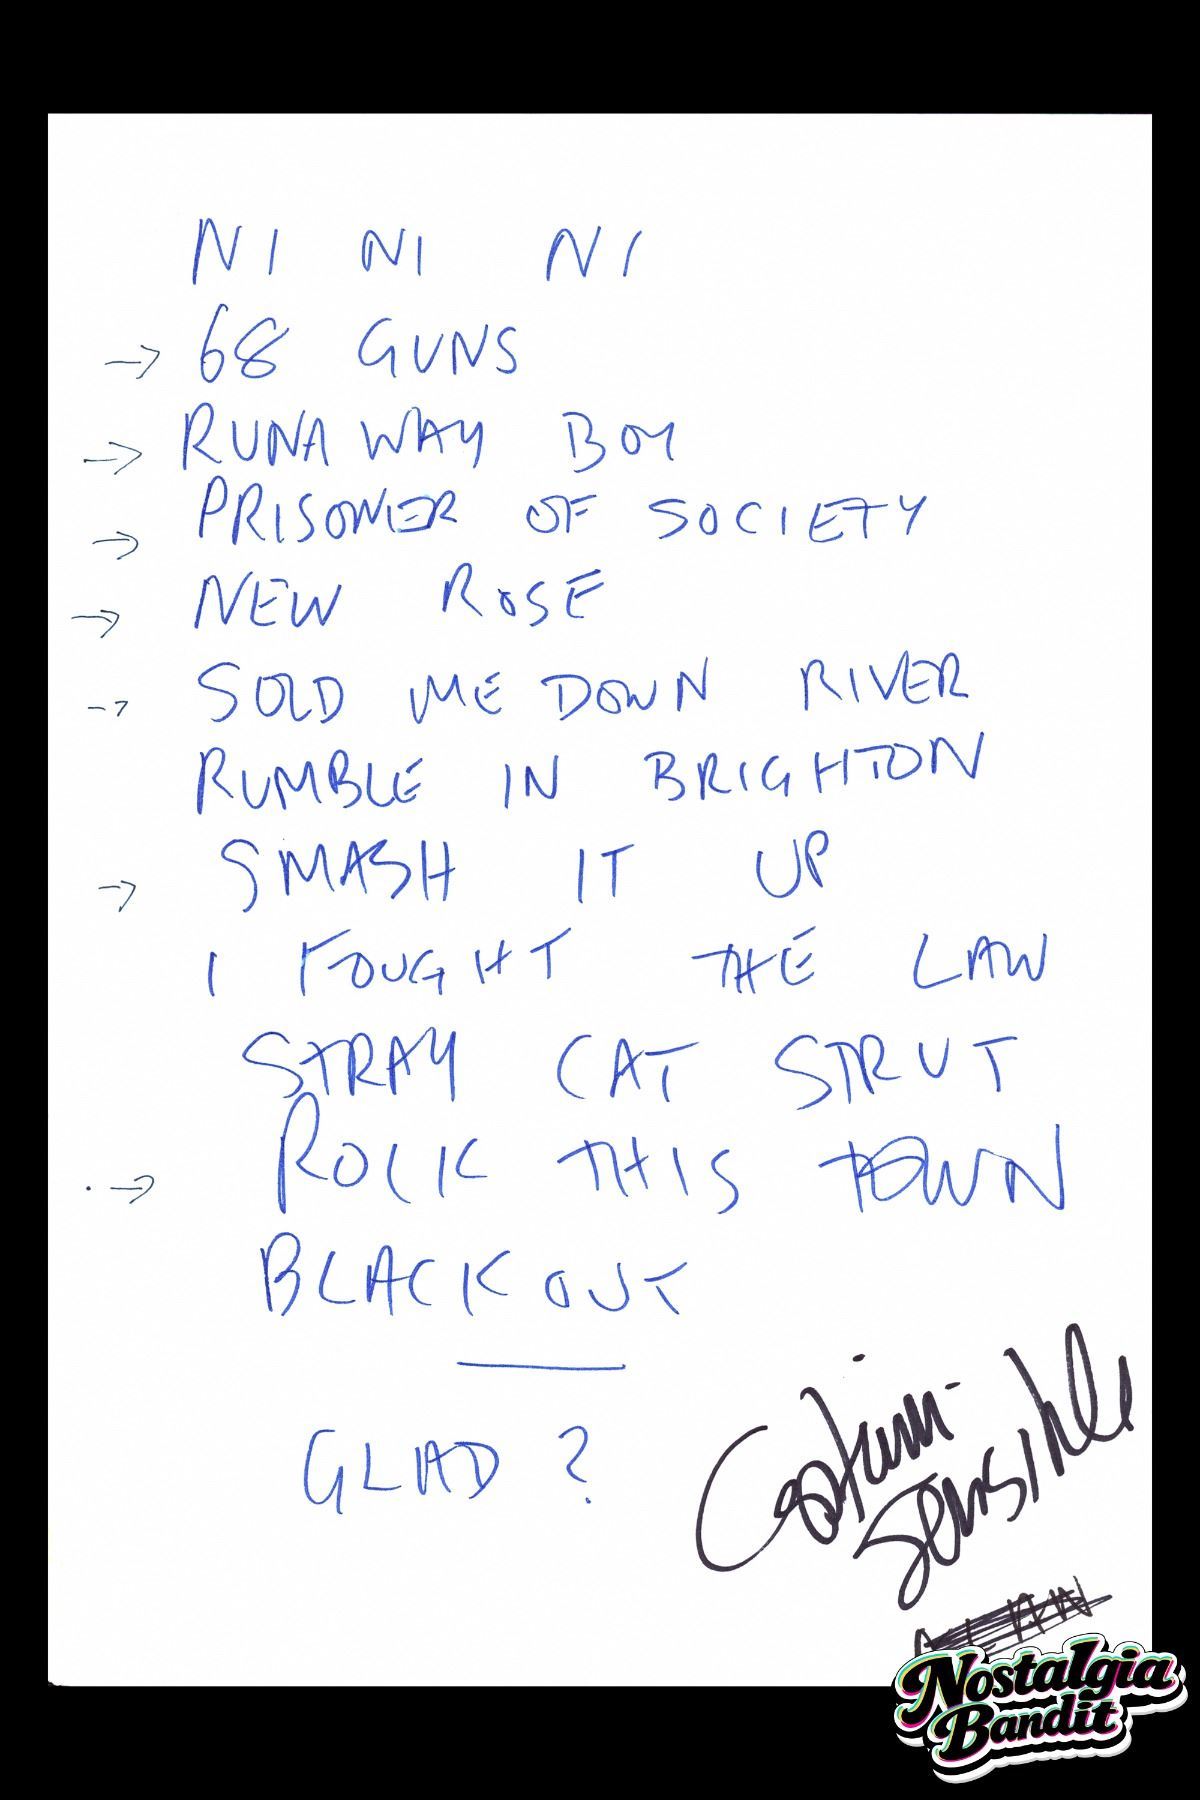 NI NI NI
→ 68 GUNS
→ RUNAWAY BOY
→ PRISONER OF SOCIETY
→ NEW ROSE
→ SOLD ME DOWN RIVER
RUMBLE IN BRIGHTON
→ SMASH IT UP
I FOUGHT THE LAW
STRAY CAT STRUT
→ ROCK THIS TOWN
BLACKOUT
GLAD?
Captain
Sensible
Nostalgia
Bandit